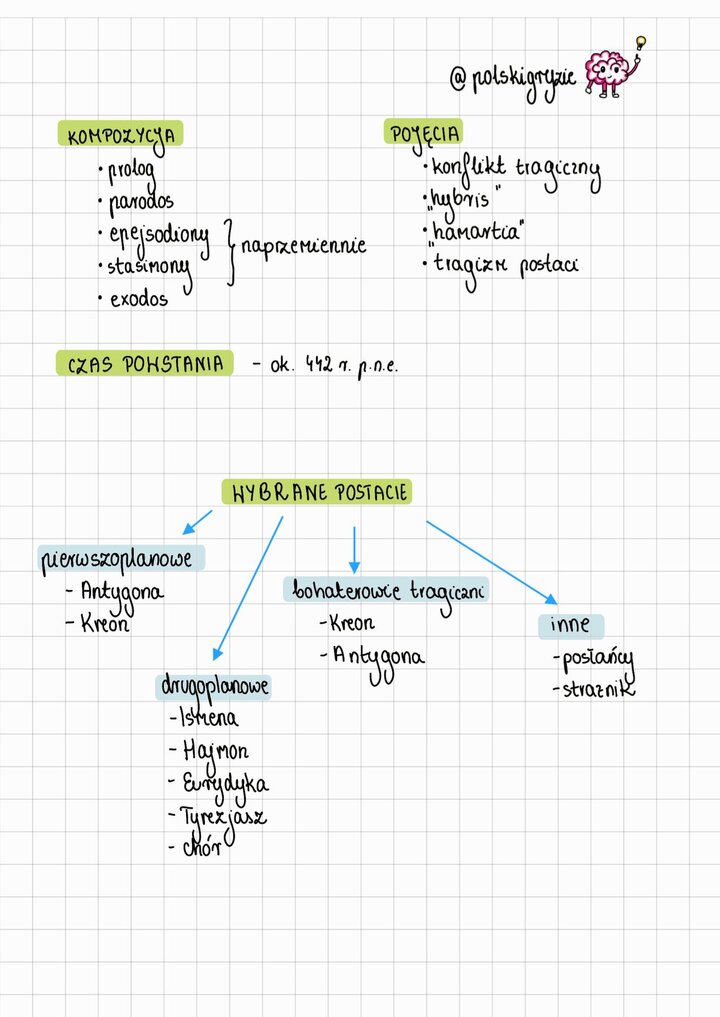 @polskigryzie
KOMPOZYCJA
• prolog
• parodos
• epejsodiony
• stasimony
} naprzemiennie
• exodos
POJĘCIA
• konflikt tragiczny
• "hybris"
• "hamartia"
• tragizm postaci
CZAS POWSTANIA - ok. 442 r. p.n.e.
WYBRANE POSTACIE
pierwszoplanowe
- Antygona
- Kreon
drugoplanowe
- Ismena
- Hajmon
- Eurydyka
- Tyrezjasz
- chór
bohaterowie tragiczni
- Kreon
- Antygona
inne
- posłańcy
- strażnik